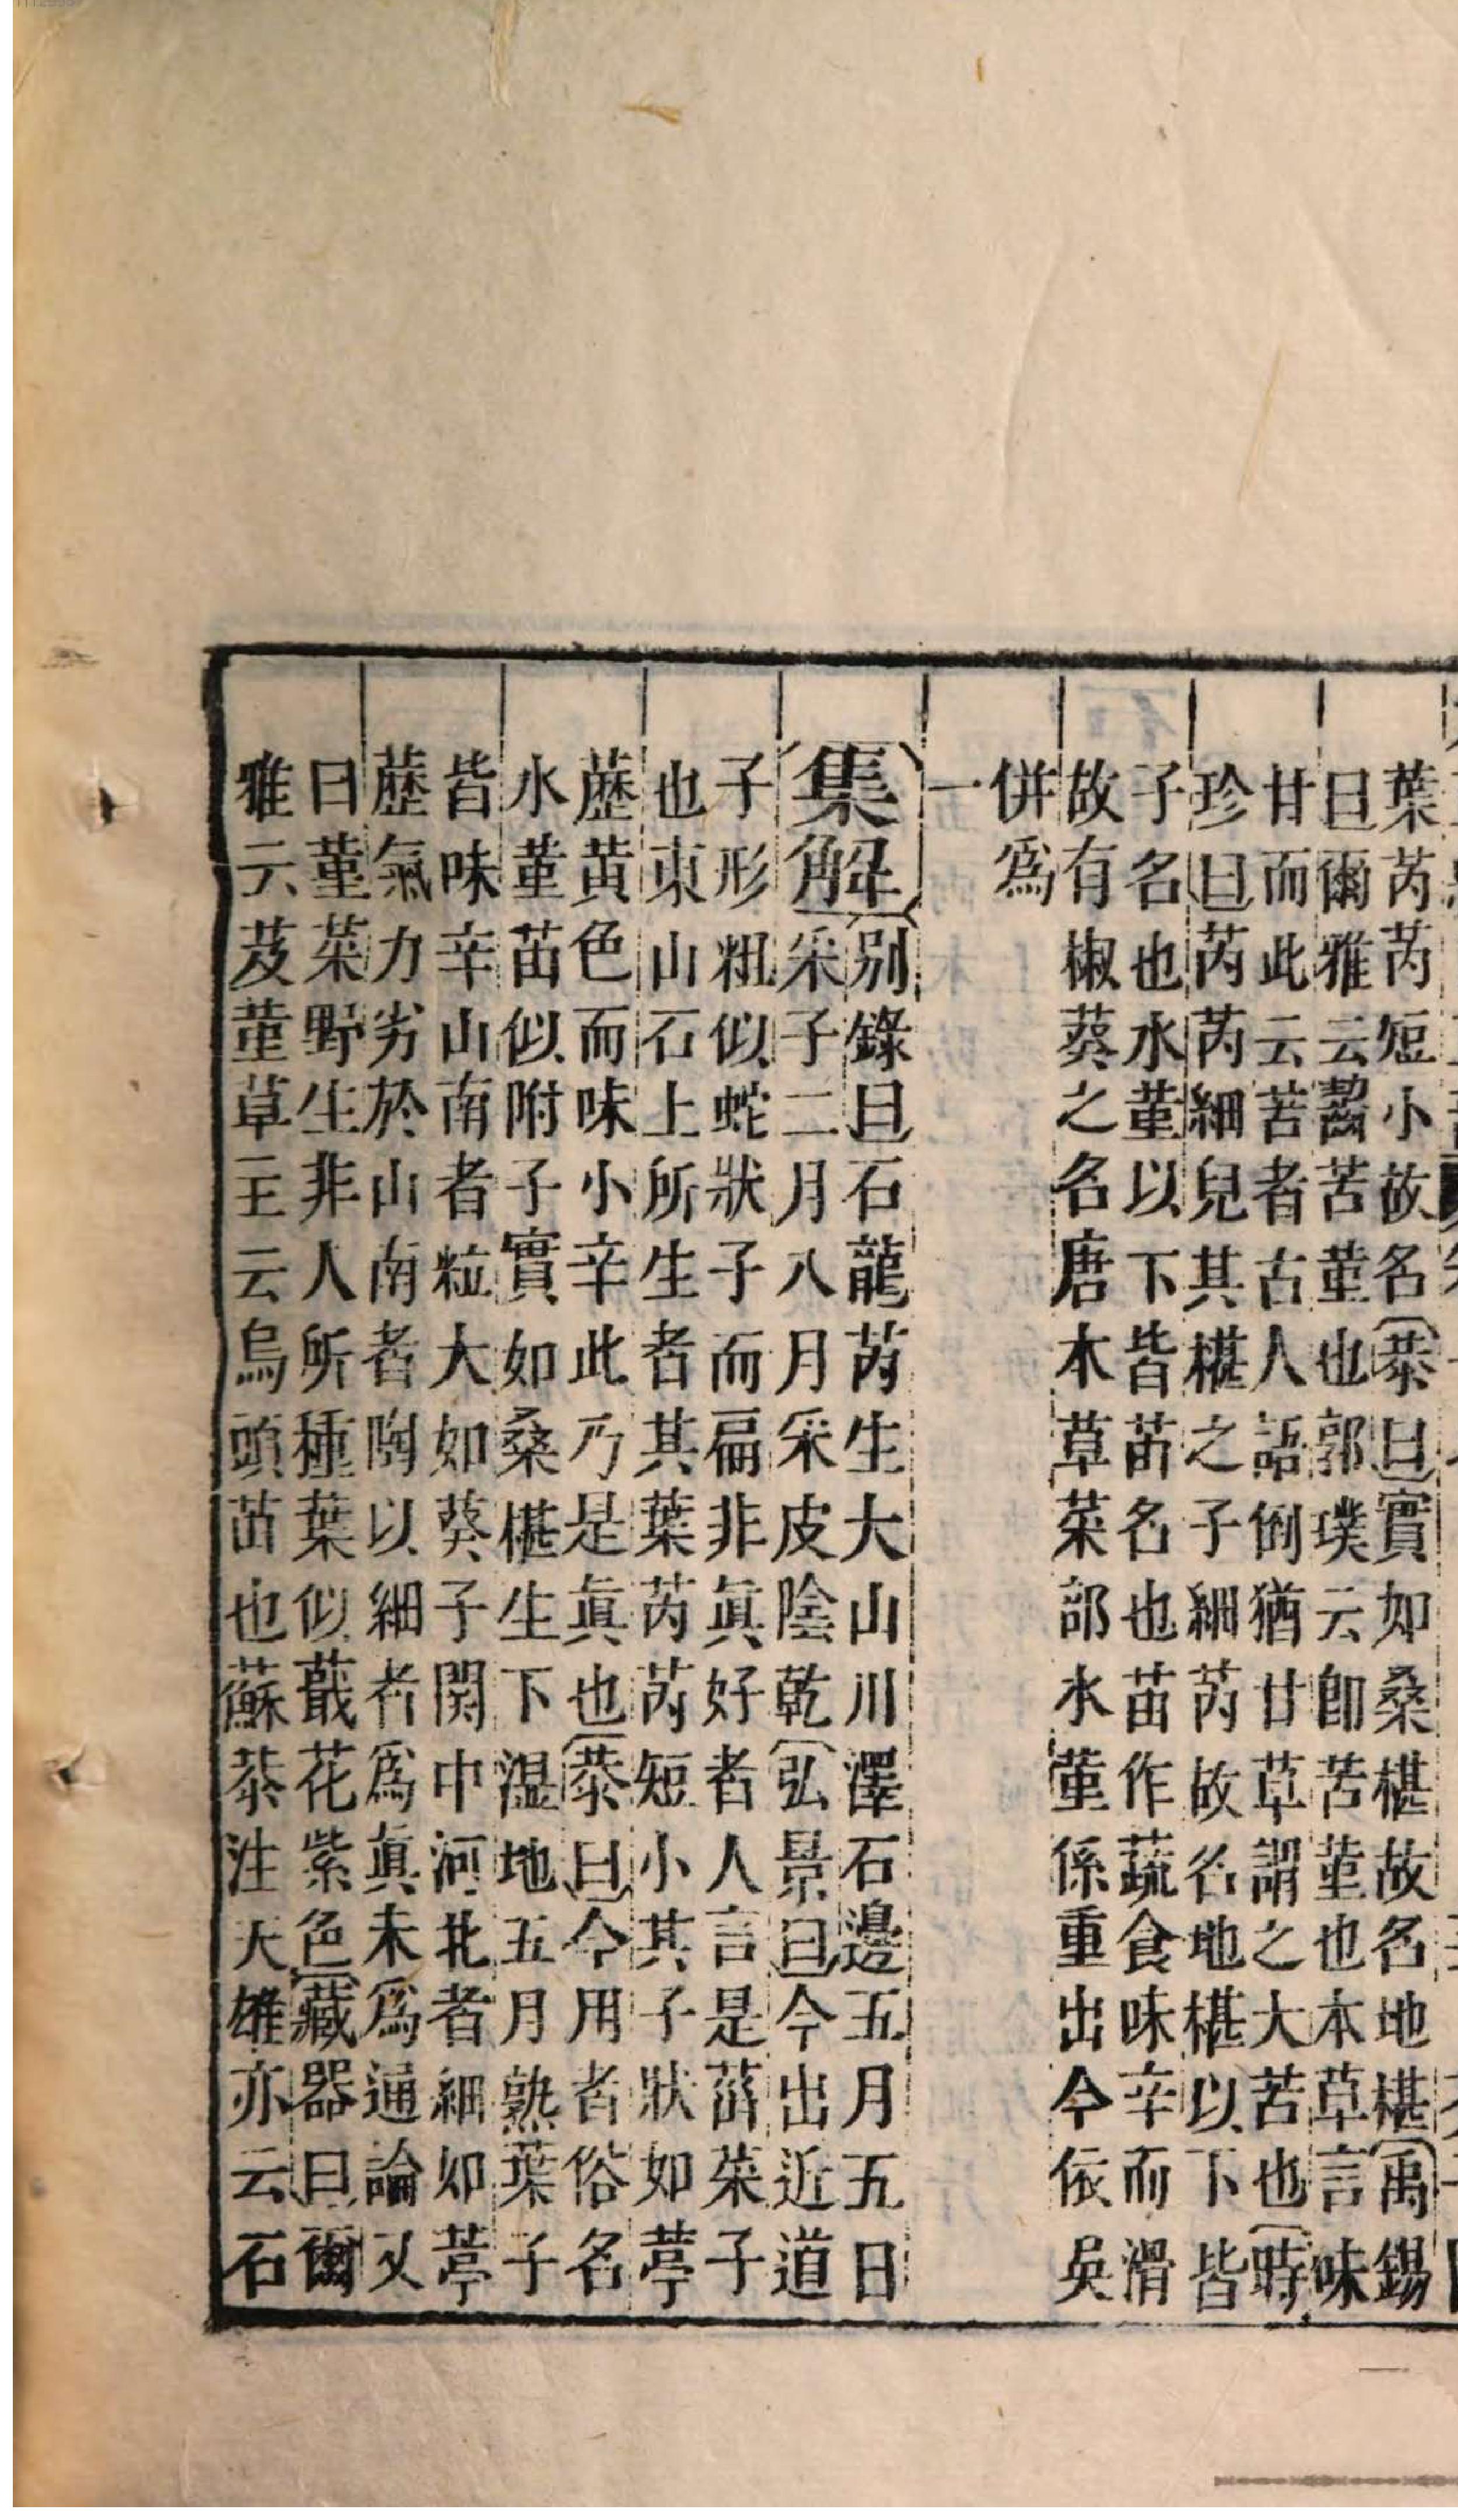 葉芮芮短小故名恭曰實如桑椹故名地椹禹錫
曰爾雅云齧苦堇也郭璞云即苦堇也本草言味
甘而此云苦者古人語倒猶甘草謂之大苦也時
珍曰芮芮細皃其椹之子細芮故名地椹以下皆
子名也水堇以下皆苗名也苗作蔬食味辛而滑
故有椒葵之名唐本草菜部水堇係重出今依吳
併爲
一
集解别錄曰石龍芮生大山川澤石邊五月五日
采子二月八月采皮陰乾弘景曰今出近道
子形粗似蛇狀子而扁非眞好者人言是蓄菜子
也東山石上所生者其葉芮芮短小其子狀如葶
藶黄色而味小辛此乃是眞也恭曰今用者俗名
水堇苗似附子實如桑椹生下湿地五月熟葉子
皆味辛山南者粒大如葵子関中河北者細如葶
藶氣力劣於山南者陶以細者爲眞未爲通論又
曰堇菜野生非人所種葉似蕺花紫色藏器曰爾
雅云芨堇草王云烏頭苗也蘇恭注天雄亦云石